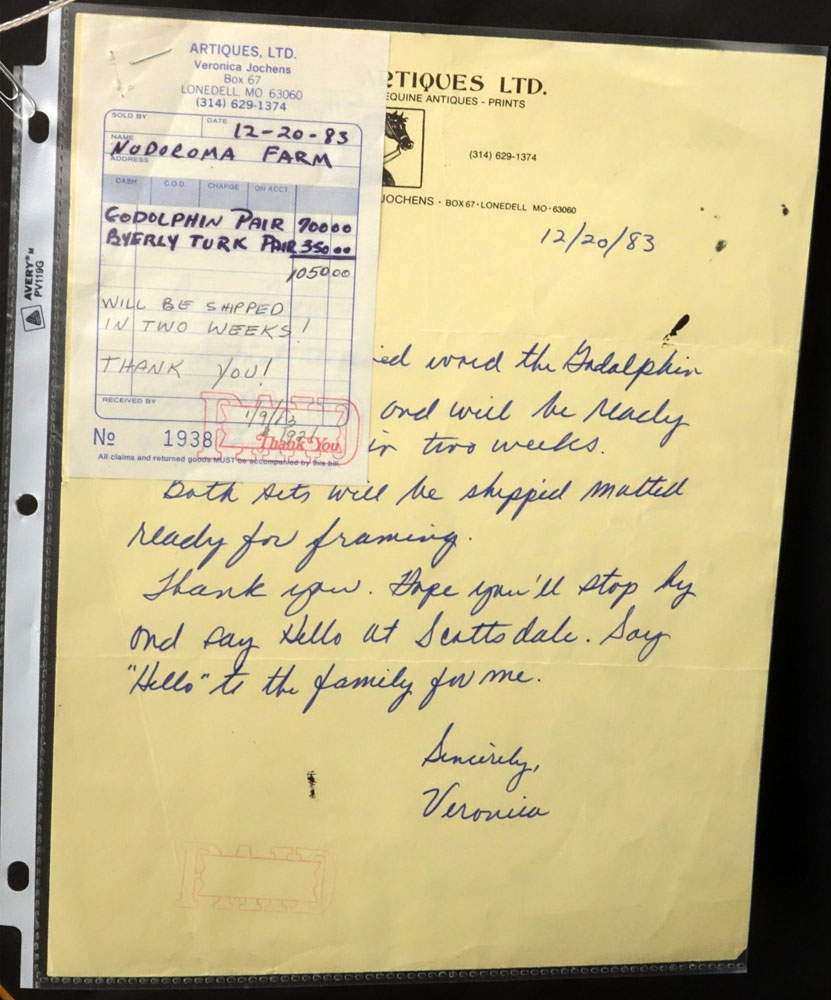 ARTIQUES, LTD.
Veronica Jochens
Box 67
LONEDELL, MO. 63060
(314) 629-1374
SOLD BY
DATE 12-20-83
NAME NODOROMA FARM
ADDRESS
CASH C.O.D. CHARGE ON ACCT.
GODOLPHIN PAIR 70000
BYERLY TURK PAIR 35000
105000
WILL BE SHIPPED
IN TWO WEEKS!
THANK YOU!
RECEIVED BY
PAID
Thank You
No 1938
All claims and returned goods MUST be accompanied by this bill.
RTIQUES LTD.
EQUINE ANTIQUES - PRINTS
(314) 629-1374
JOCHENS · BOX 67 · LONEDELL MO · 63060
12/20/83
ed word the Godolphin
and will be ready
in two weeks.
Both sets will be shipped matted
ready for framing.
Thank you. Hope you'll stop by
and say Hello at Scottsdale. Say
"Hello" to the family for me.
Sincerely,
Veronica
PAID
AVERY™
PV119G